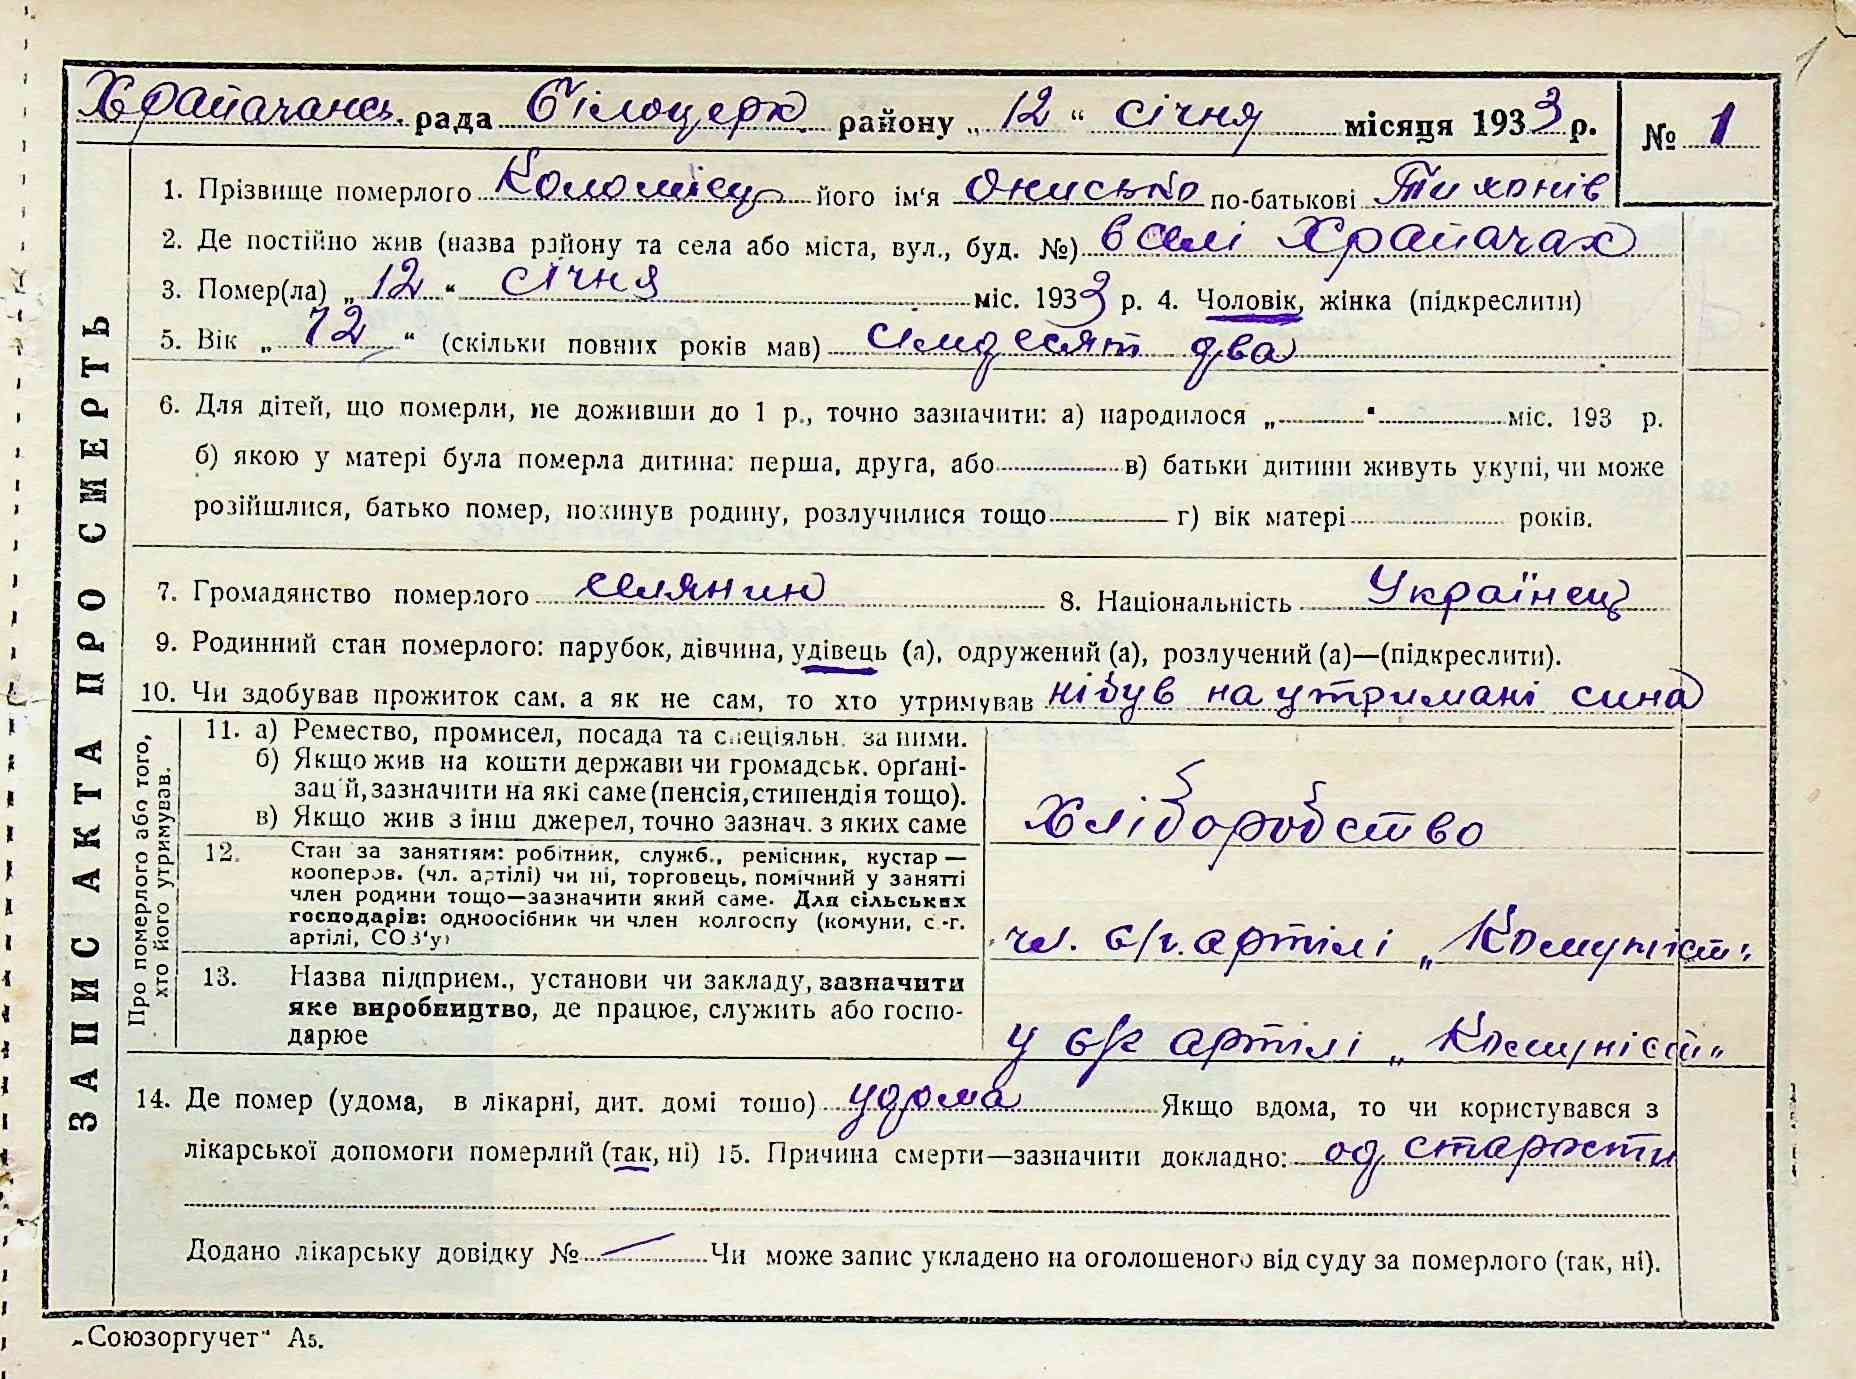 Храпачансь. рада Білоцерк. району „12“ січня місяця 1933 р. № 1
1
ЗАПИС АКТА ПРО СМЕРТЬ
1. Прізвище померлого Коломієць його ім‘я Онисько по-батькові Тихонів
2. Де постійно жив (назва району та села або міста, вул., буд. №) в селі Храпачах
3. Помер(ла) „12“ січня міс. 1933 р. 4. Чоловік, жінка (підкреслити)
5. Вік „72“ (скільки повних років мав) сімдесят два
6. Для дітей, що померли, не доживши до 1 р., точно зазначити: а) народилося „ “ міс. 193 р.
б) якою у матері була померла дитина: перша, друга, або в) батьки дитини живуть укупі, чи може
розійшлися, батько помер, покинув родину, розлучилися тощо г) вік матері років.
7. Громадянство померлого селянин 8. Національність Українець
9. Родинний стан померлого: парубок, дівчина, удівець (а), одружений (а), розлучений (а)—(підкреслити).
10. Чи здобував прожиток сам, а як не сам, то хто утримував ні був на утримані сина
Про померлого або того,
хто його утримував.
11. а) Ремество, промисел, посада та спеціяльн. за ними.
б) Якщо жив на кошти держави чи громадськ. орґані-
зацій, зазначити на які саме (пенсія, стипендія тощо).
в) Якщо жив з інш джерел, точно зазнач. з яких саме
Хліборобство
12. Стан за заняттям: робітник, служб., ремісник, кустар —
кооперов. (чл. артілі) чи ні, торговець, помічний у занятті
член родини тощо—зазначити який саме. Для сільських
господарів: одноосібник чи член колгоспу (комуни, с.-г.
артілі, СОЗ‘у)
чл. с/г. артілі „Комуніст“
13. Назва підприєм., установи чи закладу, зазначити
яке виробництво, де працює, служить або госпо-
дарює
у с/г артілі „Комуніст“
14. Де помер (удома, в лікарні, дит. домі тощо) удома Якщо вдома, то чи користувався з
лікарської допомоги померлий (так, ні) 15. Причина смерти—зазначити докладно: од старости
Додано лікарську довідку № — Чи може запис укладено на оголошеного від суду за померлого (так, ні).
„Союзоргучет“ А5.